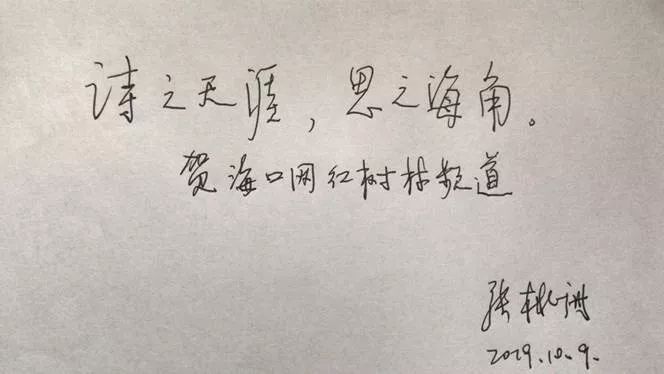 诗之天涯，思之海角。
贺海口网红树林频道
张桃洲
2019.10.9.